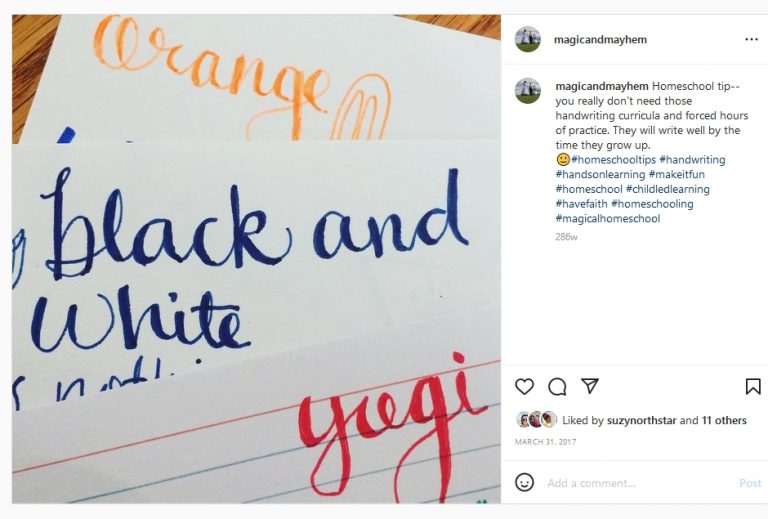 Orange
black and
White
yugi
magicandmayhem
magicandmayhem Homeschool tip--
you really don't need those
handwriting curricula and forced hours
of practice. They will write well by the
time they grow up.
🙂#homeschooltips #handwriting
#handsonlearning #makeitfun
#homeschool #childledlearning
#havefaith #homeschooling
#magicalhomeschool
286w
Liked by suzynorthstar and 11 others
MARCH 31, 2017
Add a comment...
Post